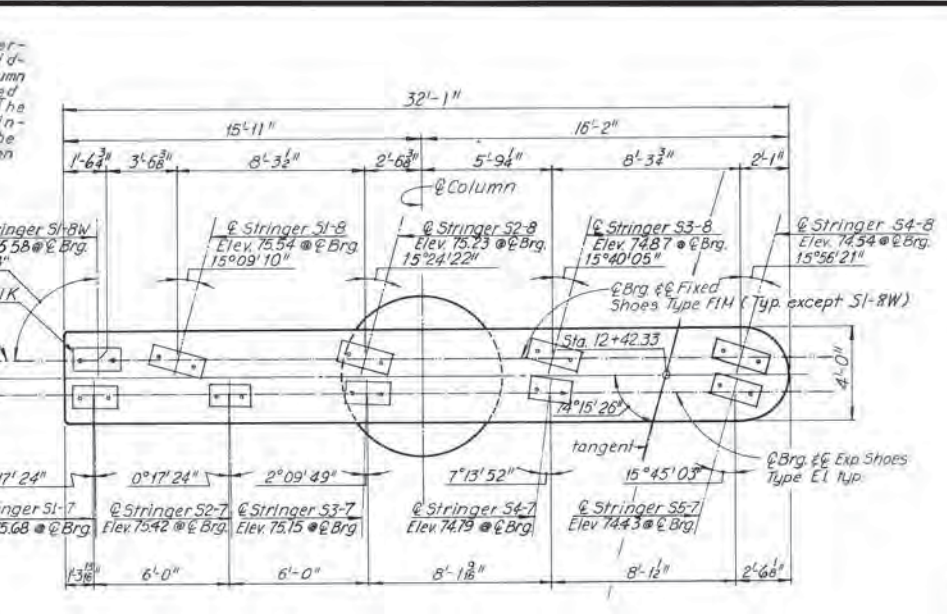 er-
d-
umn
ed
The
in-
be
en
32'-1"
15'-11"
16'-2"
1'-6¾"
3'-6⅜"
8'-3½"
2'-6⅜"
5'-9¼"
8'-3¾"
2'-1"
℄ Column
ringer S1-8W
5.58 @ ℄ Brg.
℄ Stringer S1-8
Elev. 75.54 @ ℄ Brg.
15°09'10"
℄ Stringer S2-8
Elev. 75.23 @ ℄ Brg.
15°24'22"
℄ Stringer S3-8
Elev. 74.87 @ ℄ Brg.
15°40'05"
℄ Stringer S4-8
Elev. 74.54 @ ℄ Brg.
15°56'21"
1K
℄ Brg. & ℄ Fixed
Shoes Type F1M (Typ. except S1-8W)
Sta. 12+42.33
4'-0"
74°15'26"
tangent
℄ Brg. & ℄ Exp. Shoes
Type E1 typ.
17'24"
0°17'24"
2°09'49"
7°13'52"
15°45'03"
inger S1-7
5.68 @ ℄ Brg.
℄ Stringer S2-7
Elev. 75.42 @ ℄ Brg.
℄ Stringer S3-7
Elev. 75.15 @ ℄ Brg.
℄ Stringer S4-7
Elev. 74.79 @ ℄ Brg.
℄ Stringer S5-7
Elev. 74.43 @ ℄ Brg.
1'-3 15/16"
6'-0"
6'-0"
8'-1 9/16"
8'-1½"
2'-6⅛"